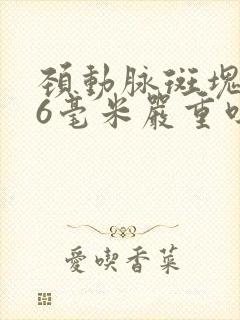 頚動脉斑塊
6毫米嚴重
愛喫香菜